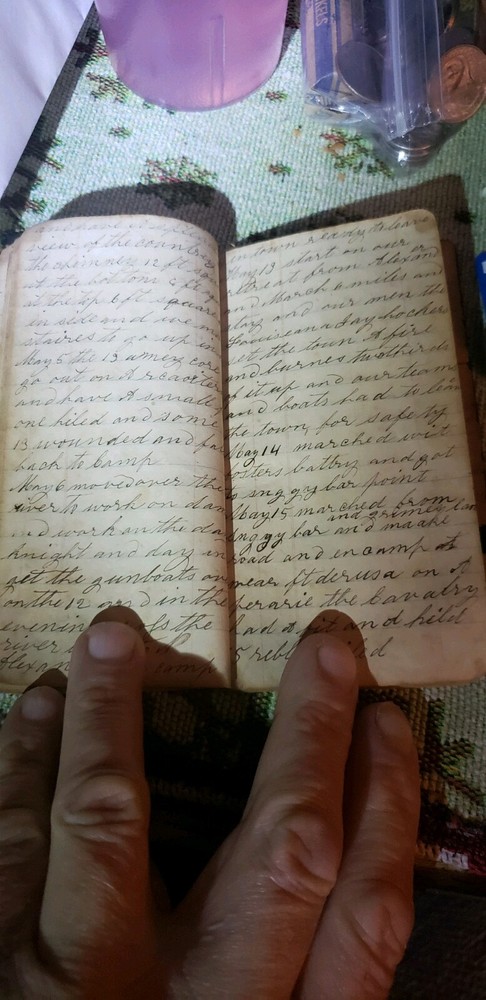 view of the country
the chimnen 12 ft sq
at the bottom & ft
at the top 6 ft square
in side and
staires to go up in
May 5 the 13 umey core
go out on A
and have A small
one hiled and some
13 wounded and
back to Camp
May 6 moved over the
river to work on dam
and work on the da
knight and day
get the gunboats ov
on the 12 and in the
evening the
river
Alexan
in town ready to leave
May 13 start on our
retreat from Alexan
and March 6 miles an
and our men the
Louiseana Jay hocker
set the town A fire
and burnes two thirds
of it up and our team
and boats had to leav
the town for safe ty
May 14 marched wit
osters battry and got
to snggy bar point
May 15 marched from
snggy bar and grimey lan
and maake
road and en camp at
near ft derusa on A
perarie the Cavalry
had A fit and hild
5 rebls
KELS